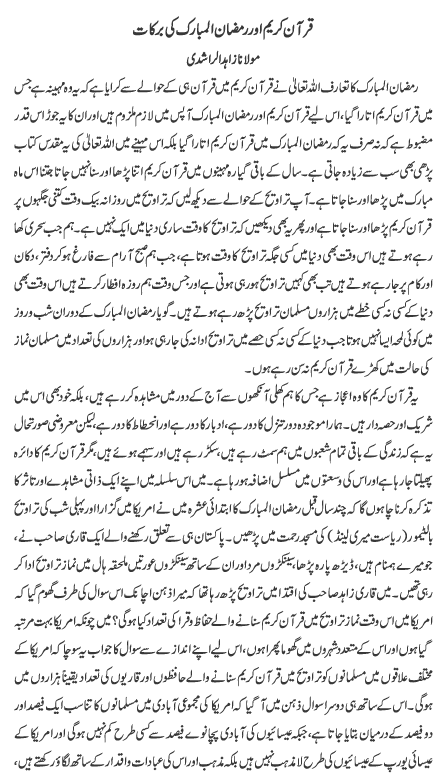 قرآن کریم اور رمضان المبارک کی برکات
مولانا زاہد الراشدی
رمضان المبارک کا تعارف اللہ تعالیٰ نے قرآن کریم میں قرآن ہی کے حوالے سے کرایا ہے کہ یہ وہ مہینہ ہے جس
میں قرآن کریم اتارا گیا، اس لیے قرآن کریم اور رمضان المبارک آپس میں لازم ملزوم ہیں اور ان کا یہ جوڑ اس قدر
مضبوط ہے کہ نہ صرف یہ کہ رمضان المبارک میں قرآن کریم اتارا گیا بلکہ اس مہینے میں اللہ تعالیٰ کی یہ مقدس کتاب
پڑھی بھی سب سے زیادہ جاتی ہے۔ سال کے باقی گیارہ مہینوں میں قرآن کریم اتنا پڑھا اور سنا نہیں جاتا جتنا اس ماہ
مبارک میں پڑھا اور سنا جاتا ہے۔ آپ تراویح کے حوالے سے دیکھ لیں کہ تراویح میں روزانہ بیک وقت کتنی جگہوں پر
قرآن کریم پڑھا اور سنا جاتا ہے اور پھر یہ بھی دیکھیں کہ تراویح کا وقت ساری دنیا میں ایک نہیں ہے۔ ہم جب سحری کھا
رہے ہوتے ہیں اس وقت بھی دنیا میں کسی جگہ تراویح کا وقت ہوتا ہے، جب ہم صبح آرام سے فارغ ہو کر دفتر، دکان
اور کام پر جا رہے ہوتے ہیں تب بھی کہیں تراویح ہو رہی ہوتی ہے اور جس وقت ہم روزہ افطار کرتے ہیں اس وقت بھی
دنیا کے کسی نہ کسی خطے میں ہزاروں مسلمان تراویح پڑھ رہے ہوتے ہیں۔ گویا رمضان المبارک کے دوران شب و روز
میں کوئی لمحہ ایسا نہیں ہوتا جب دنیا کے کسی نہ کسی حصے میں تراویح ادا نہ کی جا رہی ہو اور ہزاروں کی تعداد میں مسلمان نماز
کی حالت میں کھڑے قرآن کریم نہ سن رہے ہوں۔
یہ قرآن کریم کا وہ اعجاز ہے جس کا ہم کھلی آنکھوں سے آج کے دور میں مشاہدہ کر رہے ہیں، بلکہ خود بھی اس میں
شریک اور حصہ دار ہیں۔ ہمارا موجودہ دور تنزل کا دور ہے، ادبار کا دور ہے اور انحطاط کا دور ہے، لیکن معروضی صورتحال
یہ ہے کہ زندگی کے باقی تمام شعبوں میں ہم سمٹ رہے ہیں، سکڑ رہے ہیں اور سہمے ہوئے ہیں، مگر قرآن کریم کا دائرہ
پھیلتا جا رہا ہے اور اس کی وسعتوں میں مسلسل اضافہ ہو رہا ہے۔ میں اس سلسلہ میں اپنے ایک ذاتی مشاہدے اور تاثر کا
تذکرہ کرنا چاہوں گا کہ چند سال قبل رمضان المبارک کا ابتدائی عشرہ میں نے امریکا میں گزارا اور پہلی شب کی تراویح
بالٹیمور (ریاست میری لینڈ) کی مسجد رحمت میں پڑھیں۔ پاکستان ہی سے تعلق رکھنے والے ایک قاری صاحب نے،
جو میرے ہمنام ہیں، ڈیڑھ پارہ پڑھا، سینکڑوں مرد اور ان کے ساتھ سینکڑوں عورتیں ملحقہ ہال میں نماز تراویح ادا کر
رہی تھیں۔ میں قاری زاہد صاحب کی اقتدا میں تراویح پڑھ رہا تھا کہ میرا ذہن اچانک اس سوال کی طرف گھوم گیا کہ
امریکا میں اس وقت نماز تراویح میں قرآن کریم سنانے والے حفاظ و قرا کی تعداد کیا ہوگی؟ میں چونکہ امریکا بہت مرتبہ
گیا ہوں اور اس کے متعدد شہروں میں گھوما پھرا ہوں، اس لیے اپنے اندازے سے سوال کا جواب یہ سوچا کہ امریکا کے
مختلف علاقوں میں مسلمانوں کو تراویح میں قرآن کریم سنانے والے حافظوں اور قاریوں کی تعداد یقیناً ہزاروں میں
ہوگی۔ اس کے ساتھ ہی دوسرا سوال ذہن میں آ گیا کہ امریکا کی مجموعی آبادی میں مسلمانوں کا تناسب ایک فیصد اور
دو فیصد کے درمیان بتایا جاتا ہے، جبکہ عیسائیوں کی آبادی پچانوے فیصد سے کسی طرح کم نہیں ہوگی اور امریکا کے
عیسائی یورپ کے عیسائیوں کی طرح لا مذہب نہیں ہیں بلکہ مذہب اور اس کی عبادات و اقدار کے ساتھ لگاؤ رکھتے ہیں،